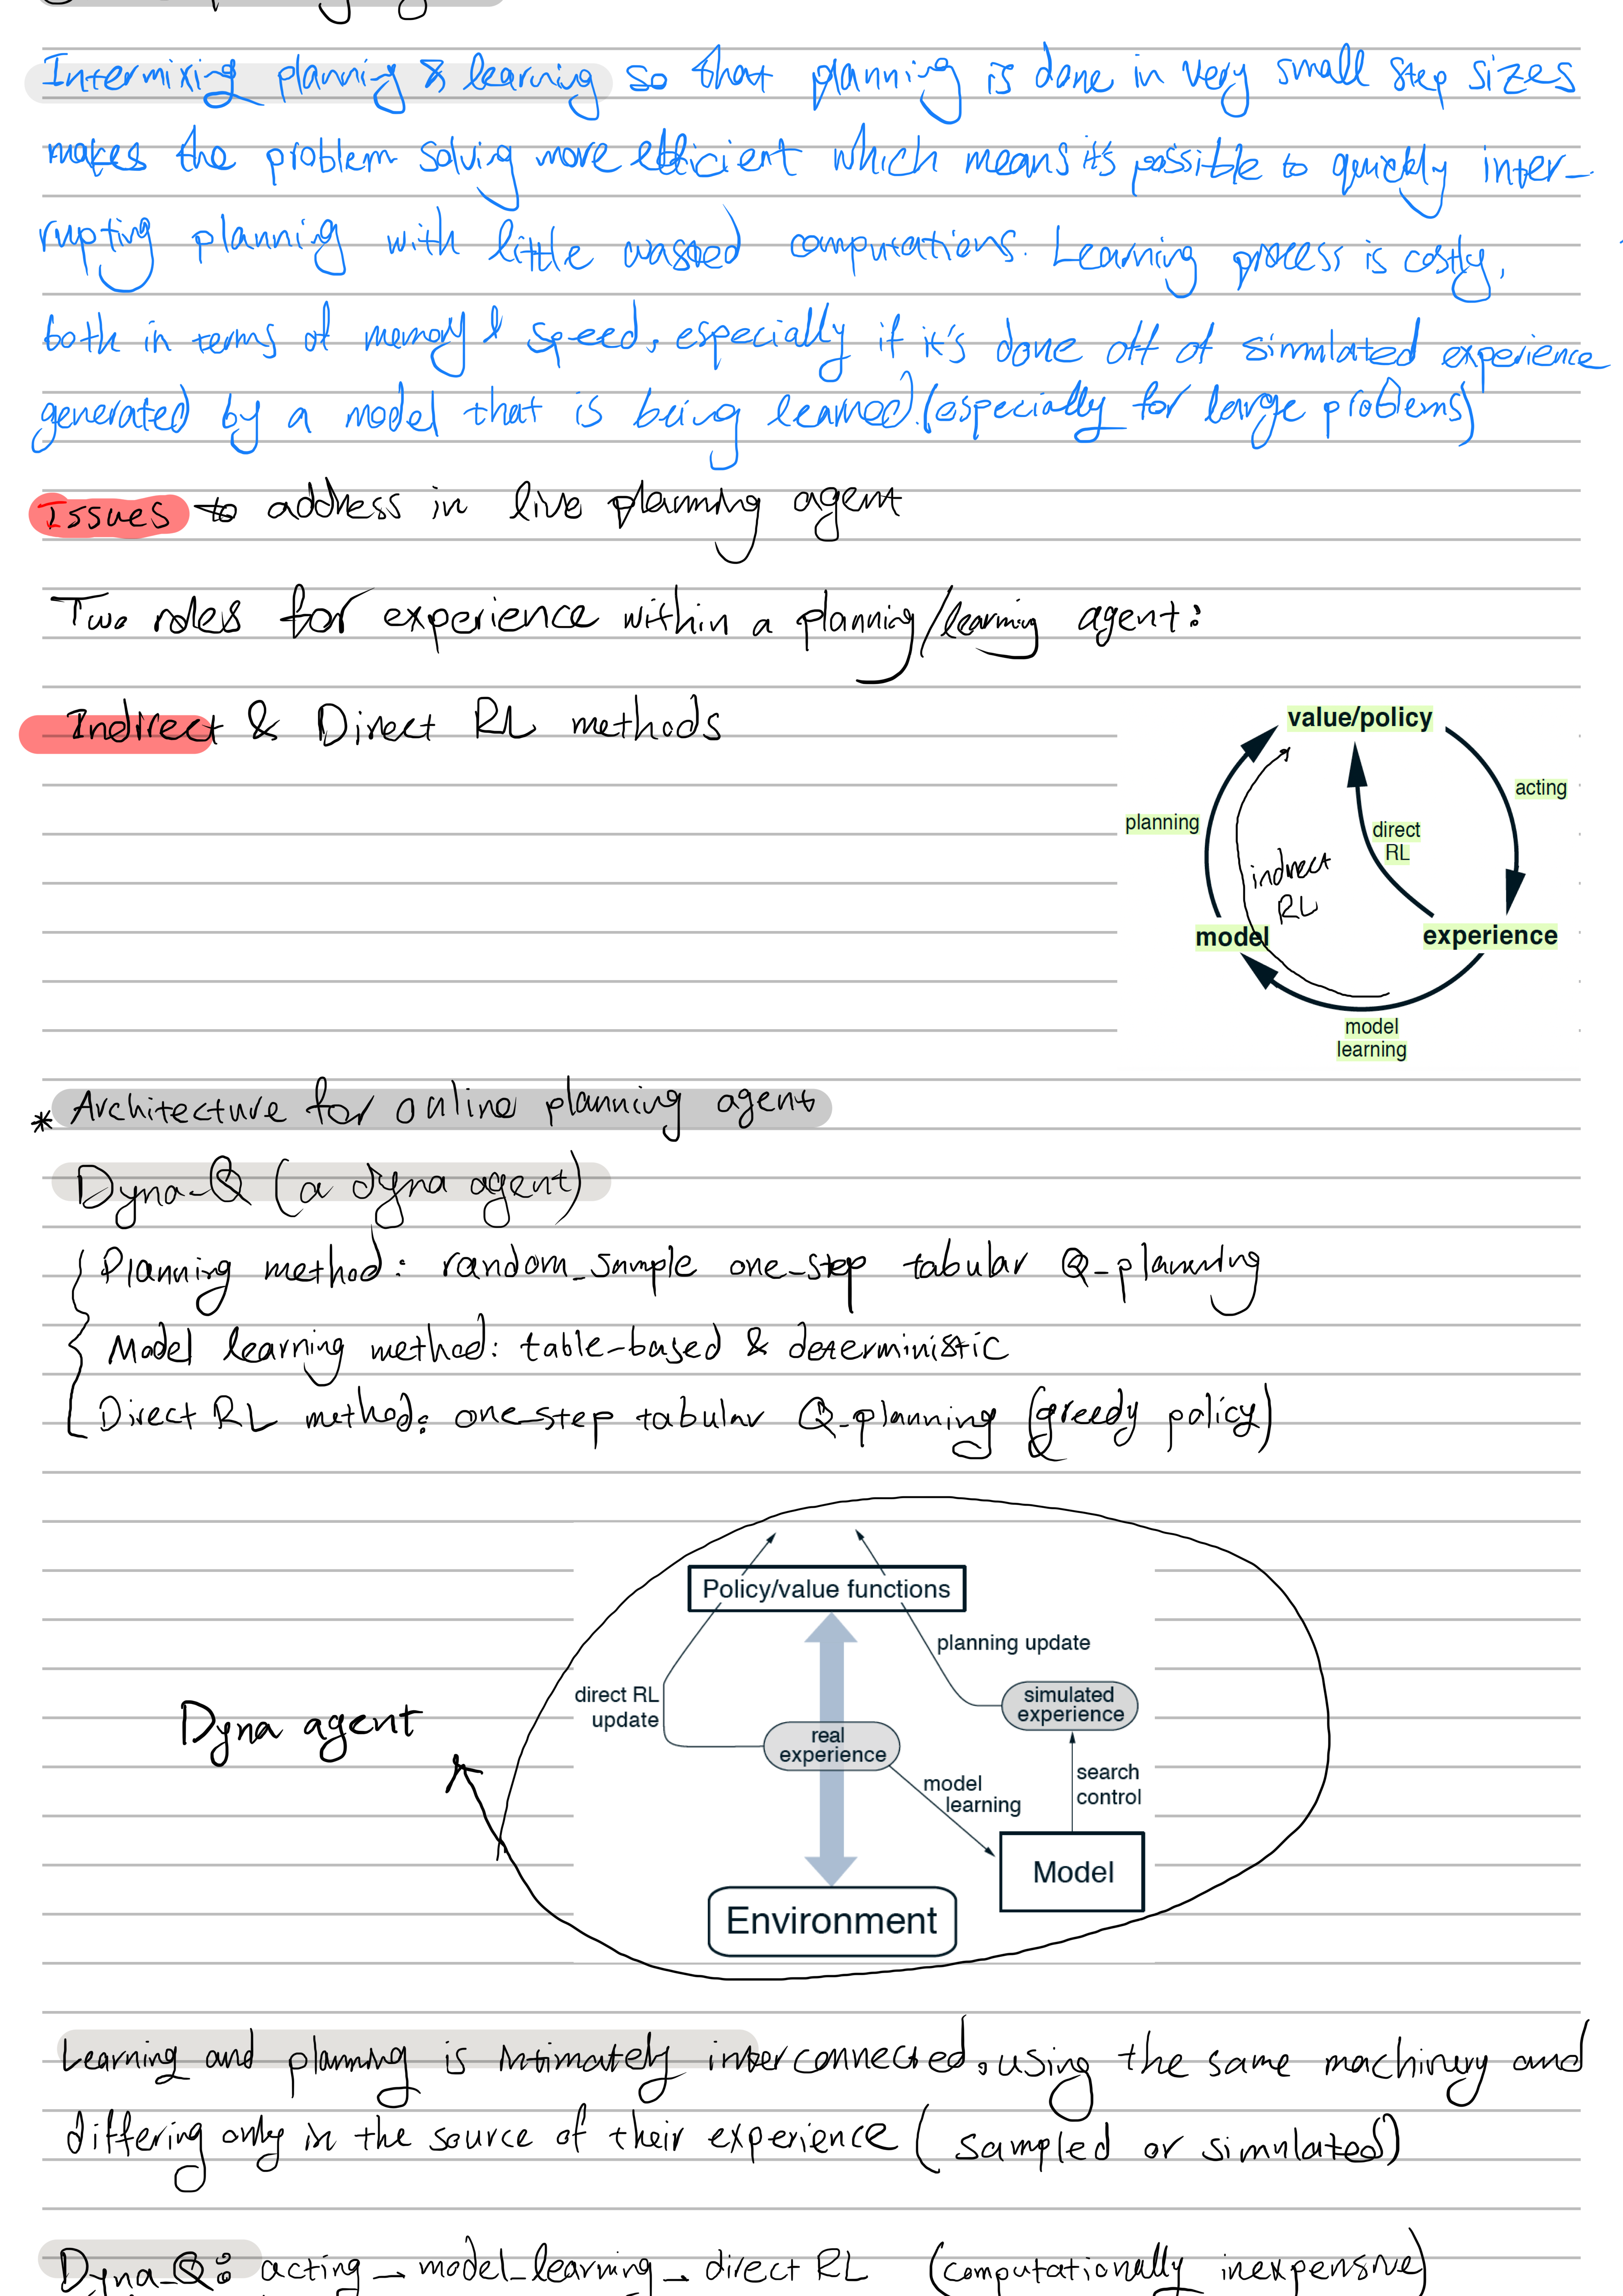 Intermixing planning & learning so that planning is done in very small step sizes
makes the problem solving more efficient which means it's possible to quickly inter-
rupting planning with little wasted computations. Learning process is costly,
both in terms of memory & speed, especially if it's done off of simulated experience
generated by a model that is being learned. (especially for large problems)
Issues to address in live planning agent
Two roles for experience within a planning/learning agent:
Indirect & Direct RL methods
value/policy
acting
planning
direct
RL
indirect
RL
model
experience
model
learning
* Architecture for online planning agent
Dyna-Q (a dyna agent)
Planning method: random_sample one-step tabular Q-planning
Model learning method: table-based & deterministic
Direct RL method: one-step tabular Q-planning (greedy policy)
Policy/value functions
planning update
direct RL
update
simulated
experience
real
experience
Dyna agent
model
learning
search
control
Model
Environment
Learning and planning is intimately interconnected, using the same machinery and
differing only in the source of their experience (sampled or simulated)
Dyna-Q: acting - model_learning - direct RL (computationally inexpensive)